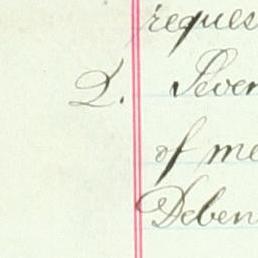 reques
2. Seven
of me
Deben